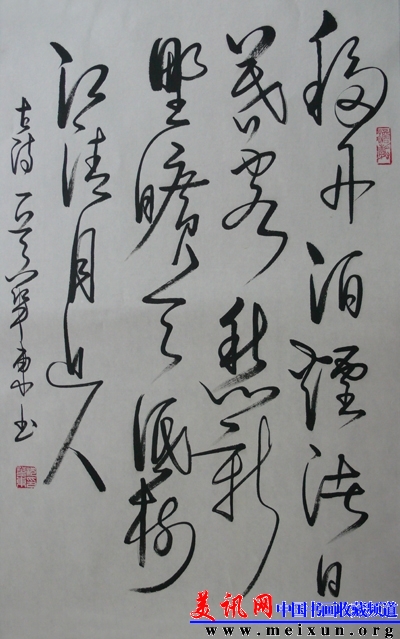 移舟泊烟渚日
暮客愁新
野旷天低树
江清月近人
古诗一首
书
美讯网 中国书画收藏频道
www.meixun.org